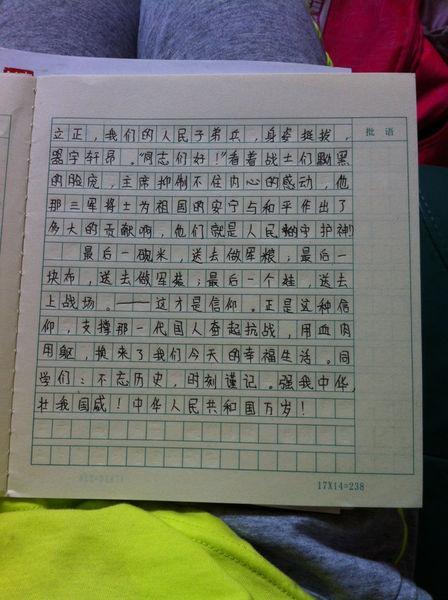 立正，我们的人民子弟兵，身姿挺拔，
器宇轩昂。“同志们好！”看着战士们黝黑
的脸庞，主席抑制不住内心的感动，他
那三军将士为祖国的安宁与和平作出了
多大的贡献啊，他们就是人民的守护神！
最后一碗米，送去做军粮；最后一
块布，送去做军装；最后一个娃，送去
上战场。——这才是信仰。正是这种信
仰，支撑那一代国人奋起抗战，用血肉
之躯，换来了我们今天的幸福生活。同
学们：不忘历史，时刻谨记。强我中华，
壮我国威！中华人民共和国万岁！
批语
17X14=238